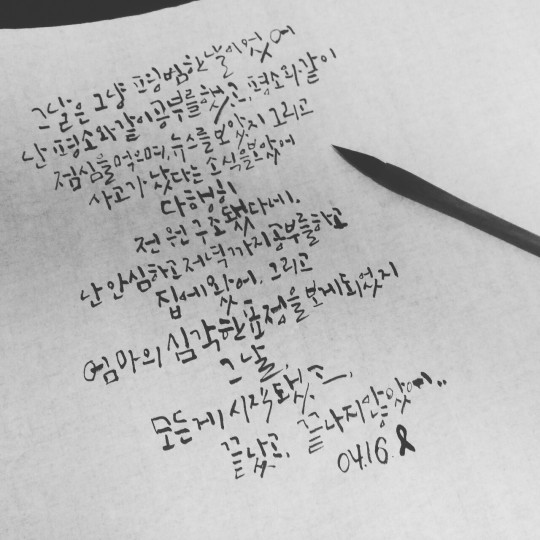 그날은 그냥 평범한 날이었어
난 평소와같이 공부를했고, 평소와같이
점심을 먹으며, 뉴스를 보았지 그리고
사고가 났다는 소식을보았어
다행히
전원구조됐다네.
난 안심하고 저녁까지공부를하고
집에왔어. 그리고
엄마의 심각한표정을보게되었지
그날,
모든게 시작됐고,
끝났고, 끝나지않았어..
04.16.